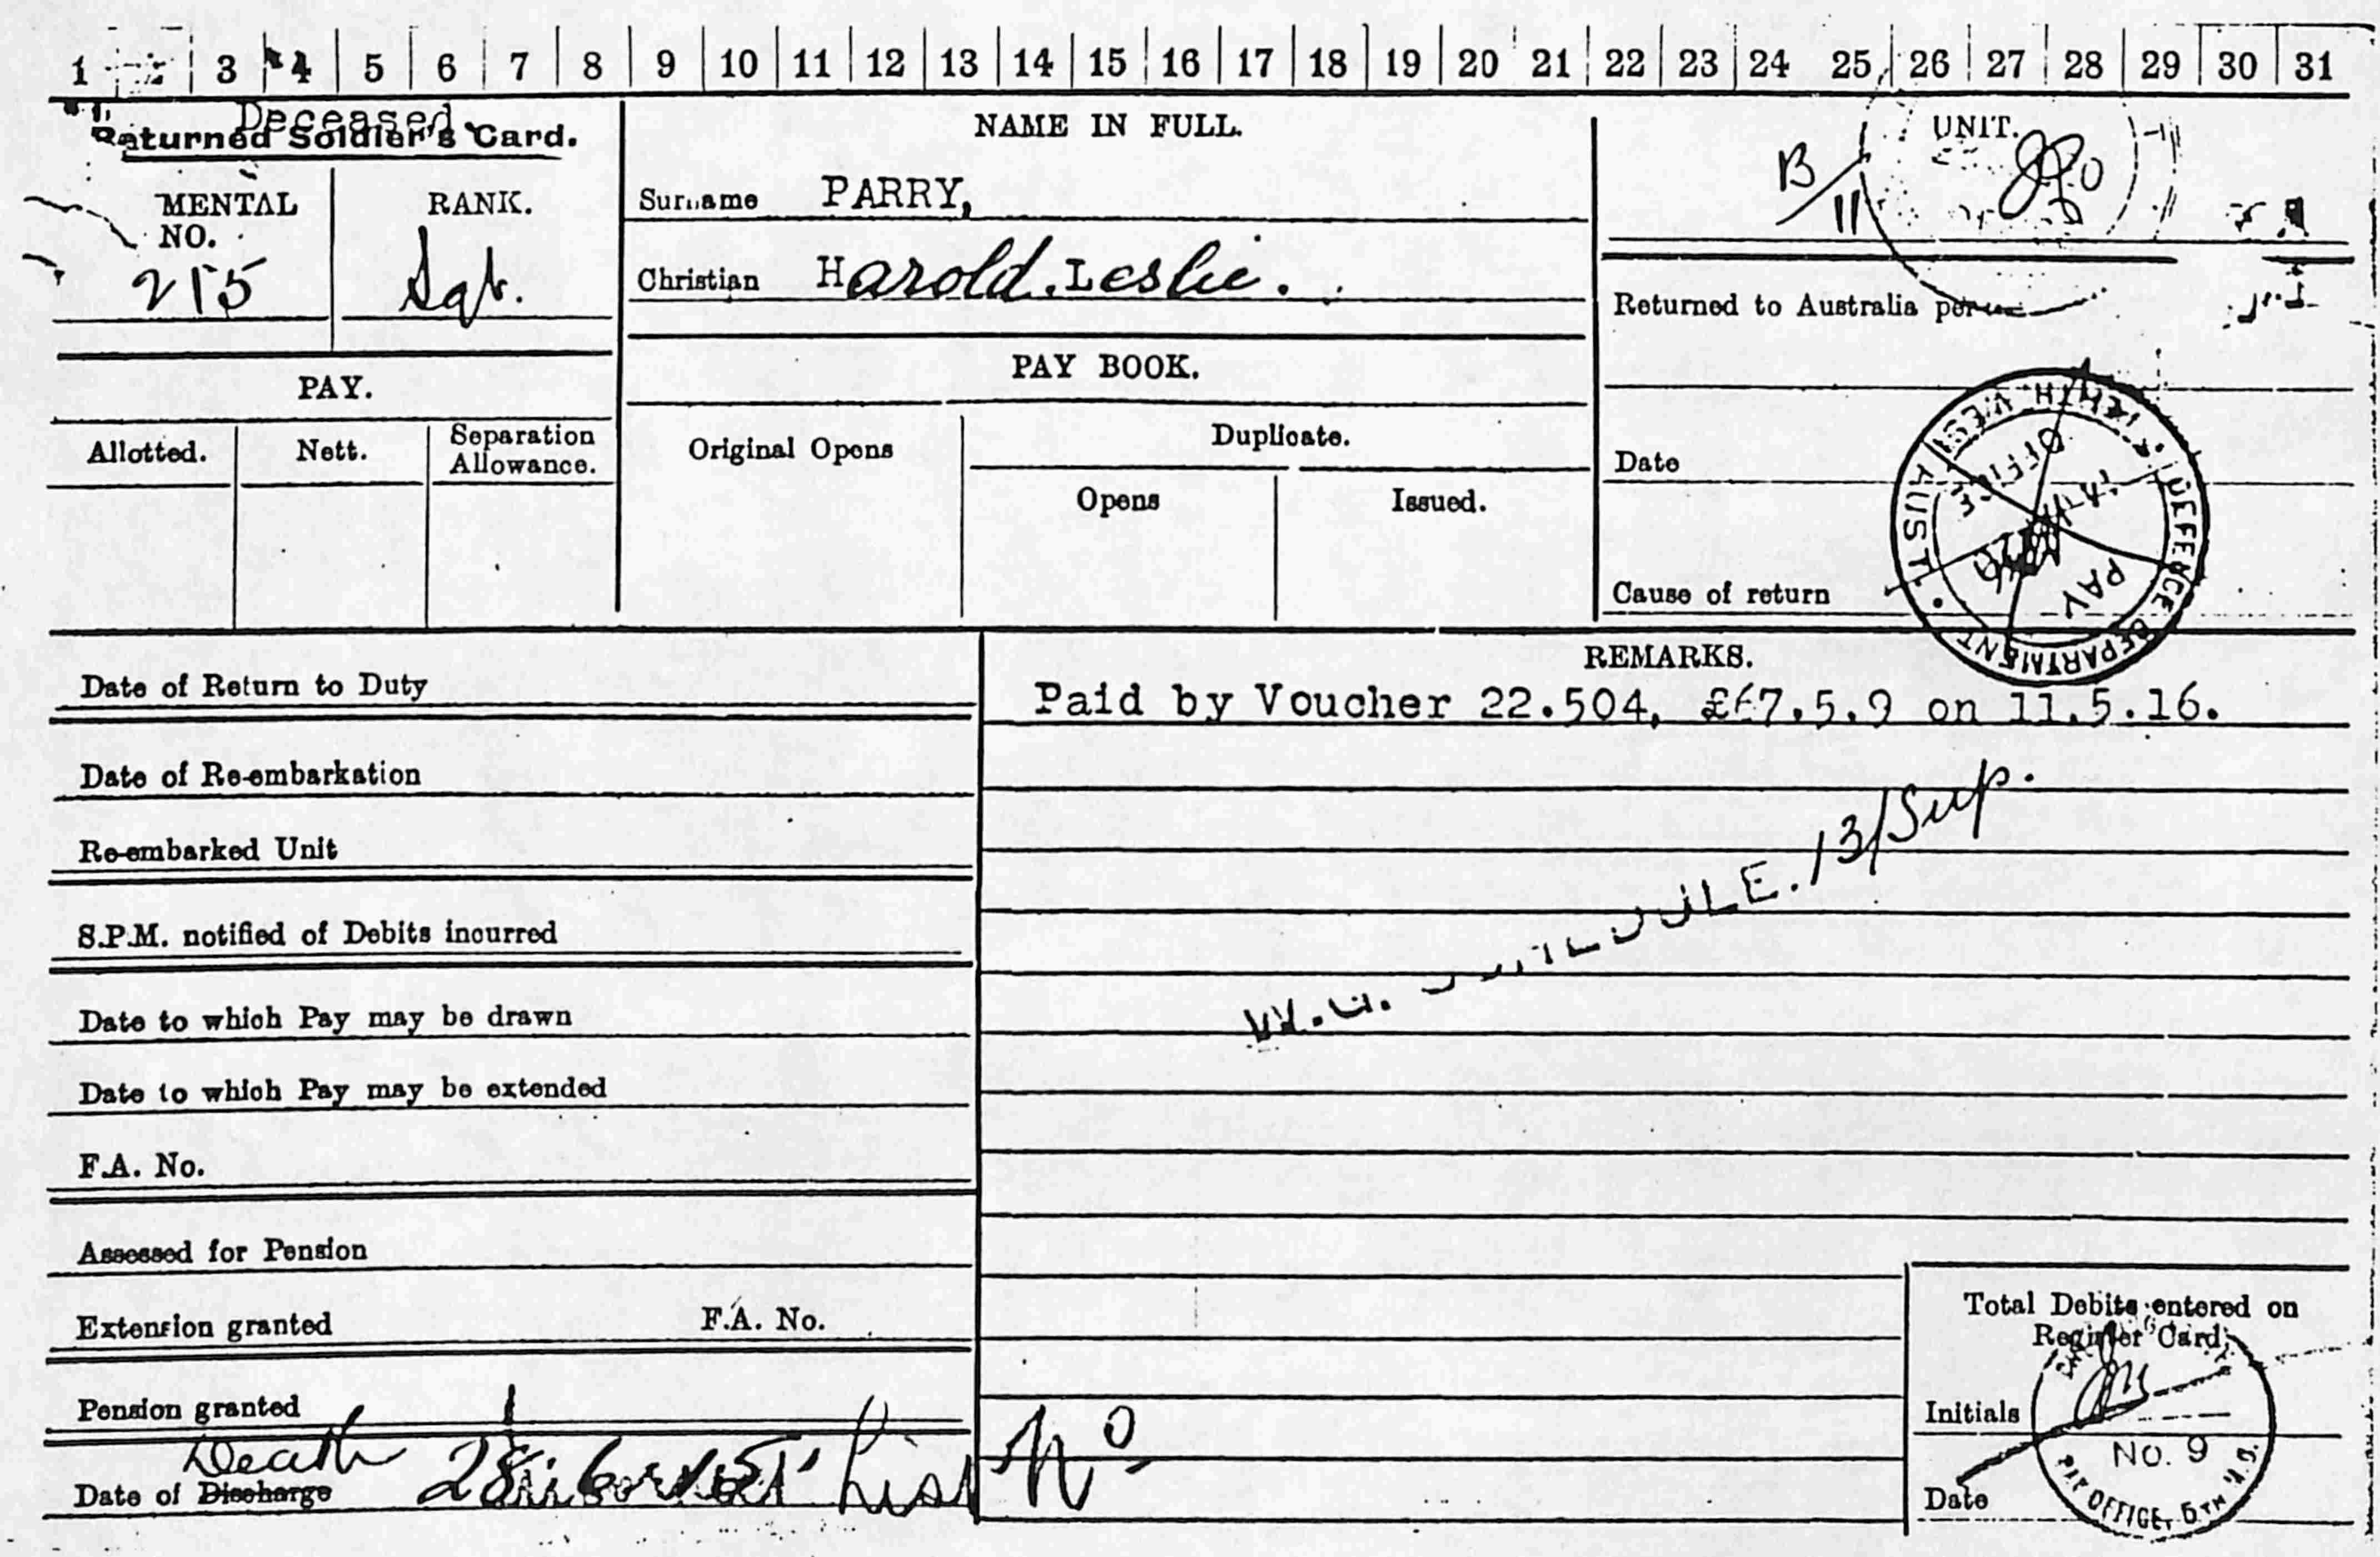 1 3 4 5 6 7 8 9 10 11 12 13 14 15 16 17 18 19 20 21 22 23 24 25 26 27 28 29 30 31
Deceased.
Returned Soldier's Card.
MENTAL NO.
215
RANK.
Sgt.
NAME IN FULL.
Surname PARRY,
Christian Harold. Leslie.
UNIT.
B/11
Returned to Australia per
PAY.
Allotted.
Nett.
Separation Allowance.
PAY BOOK.
Original Opens
Duplicate.
Opens
Issued.
Date
Cause of return
DEFENCE DEPARTMENT
AUST
PAY
OFFICE
Date of Return to Duty
Date of Re-embarkation
Re-embarked Unit
S.P.M. notified of Debits incurred
Date to which Pay may be drawn
Date to which Pay may be extended
F.A. No.
Assessed for Pension
Extension granted F.A. No.
Pension granted
Death
Date of Discharge List No
REMARKS.
Paid by Voucher 22.504, £67.5.9 on 11.5.16.
13/Sup.
Total Debits entered on
Register Card
Initials
No. 9
PAY OFFICE, 5TH M.D.
Date